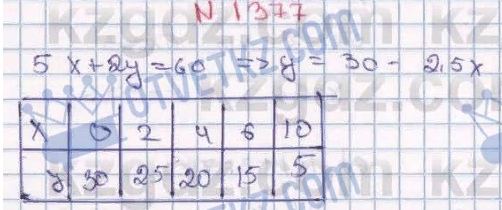 N 1377
5 x + 2y = 60 => y = 30 - 2,5x
x 0 2 4 6 10
y 30 25 20 15 5
OTVETKZ.COM